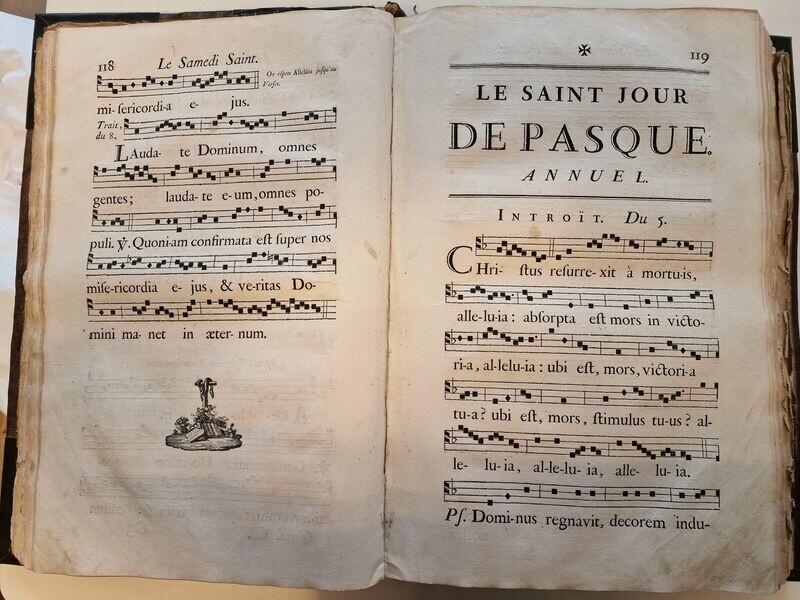 118 Le Samedi Saint.
On répete Alleluia jusqu'au
Verset.
mi-sericordi-a e- jus.
Trait,
du 8.
LAuda- te Dominum, omnes
gentes; lauda- te e-um, omnes po-
puli. ℣. Quoni-am confirmata est super nos
mise-ricordia e- jus, & ve-ritas Do-
mini ma- net in æter-num.
119
LE SAINT JOUR
DE PASQUE.
ANNUEL.
INTROÏT. Du 5.
CHri- stus resurre-xit à mortu-is,
alle-lu-ia: absorpta est mors in victo-
ri-a, al-lelu-ia: ubi est, mors, victori-a
tu-a? ubi est, mors, stimulus tu-us? al-
le- lu-ia, al-le-lu- ia, alle- lu- ia.
Ps. Domi-nus regnavit, decorem indu-